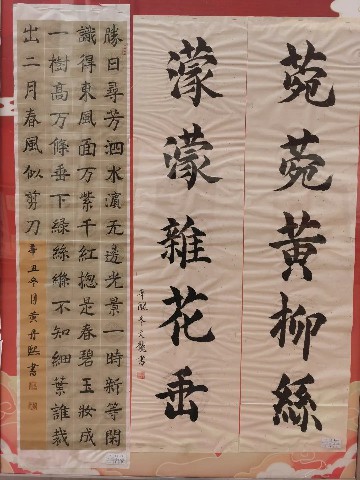 菀菀黃柳絲
濛濛雜花垂
勝日尋芳泗水濱无邊光景一時新等閑
識得東風面万紫千紅揔是春碧玉妝成
一樹高万條垂下綠絲縧不知細葉誰裁
出二月春風似剪刀
辛丑冬月黃丹熙書